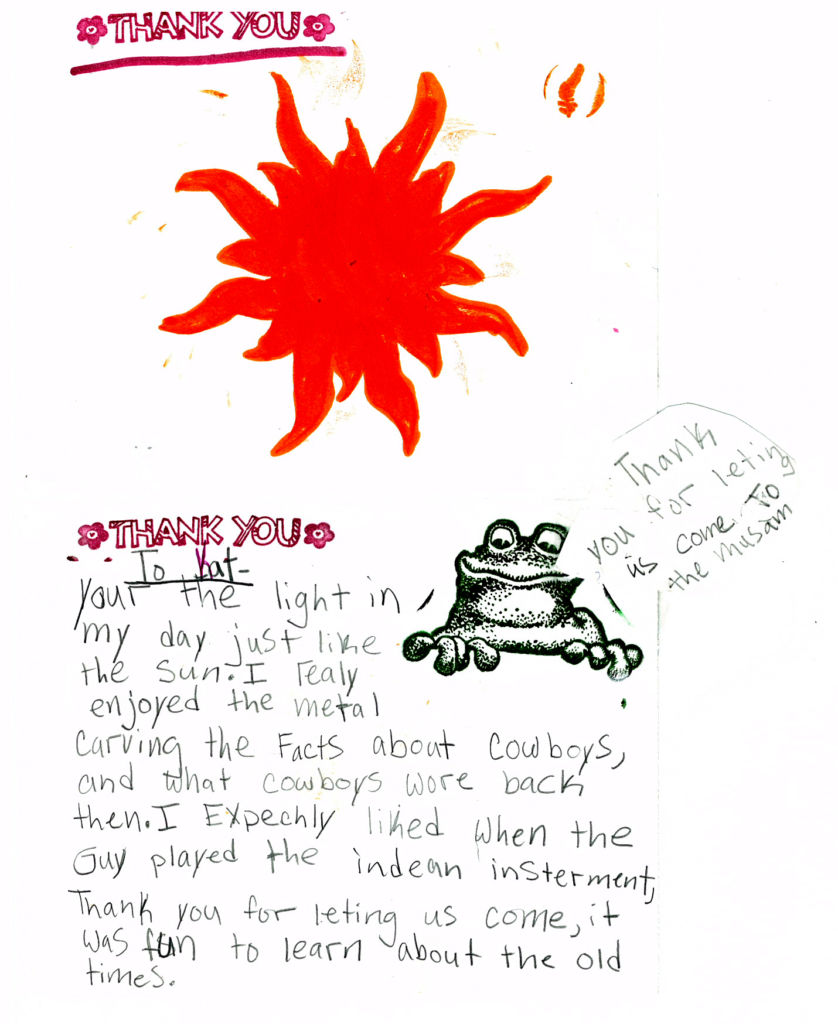 THANK YOU
THANK YOU
To Kat-
your the light in
my day just like
the sun. I realy
enjoyed the metal
carving the Facts about cowboys,
and what cowboys wore back
then. I Expechly liked when the
Guy played the indean insterment,
Thank you for leting us come, it
was fun to learn about the old
times.
Thank
you for leting
us come To
the musam